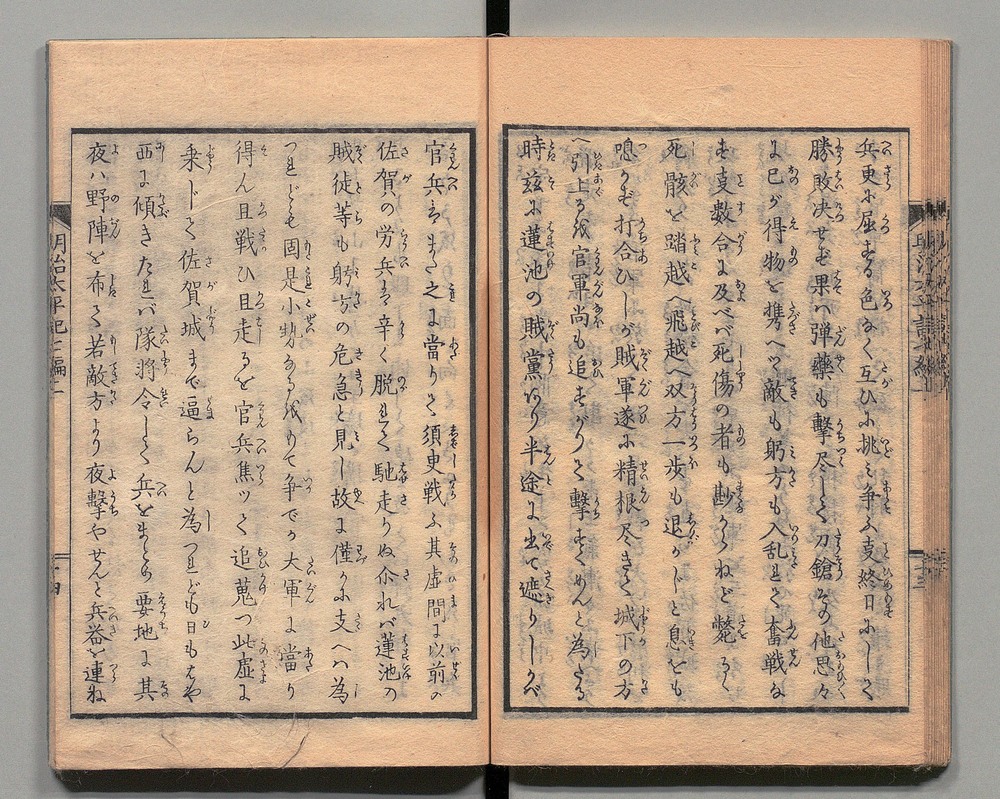 兵更に屈する色なく互ひに挑み争ふ事終日にして
勝敗决せず果ハ弾藥も撃尽して刀鎗その他思々
に己が得物を携へつゝ敵も躬方も入乱れて奮戦な
す事数合に及べバ死傷の者も尠からねど斃るゝ
死骸を踏越へ飛越へ双方一歩も退かじと息をも
つかず打合ひしが賊軍遂に精根尽きて城下の方
へ引上るを官軍尚も追すがりて撃すくめんと為たる
時茲に蓮池の賊黨あり半途に出て遮りしかバ
官兵等まづ之に當りて須臾戦ふ其虚間に以前の
佐賀の労兵等辛く脱れて馳走りぬ尒れバ蓮池の
賊徒等も躬方の危急と見し故に僅かに支へハ為
つれども固是小勢なるをもて争でか大軍に當り
得ん且戦ひ且走るを官兵焦ッて追蒐つ此虚に
乗じて佐賀城まで逼らんと為つれども日もはや
西に傾きたれバ隊將令して兵をまとめ要地に其
夜ハ野陣を布て若敵方より夜撃やせんと兵器を連ね
明治太平記七編二
十四